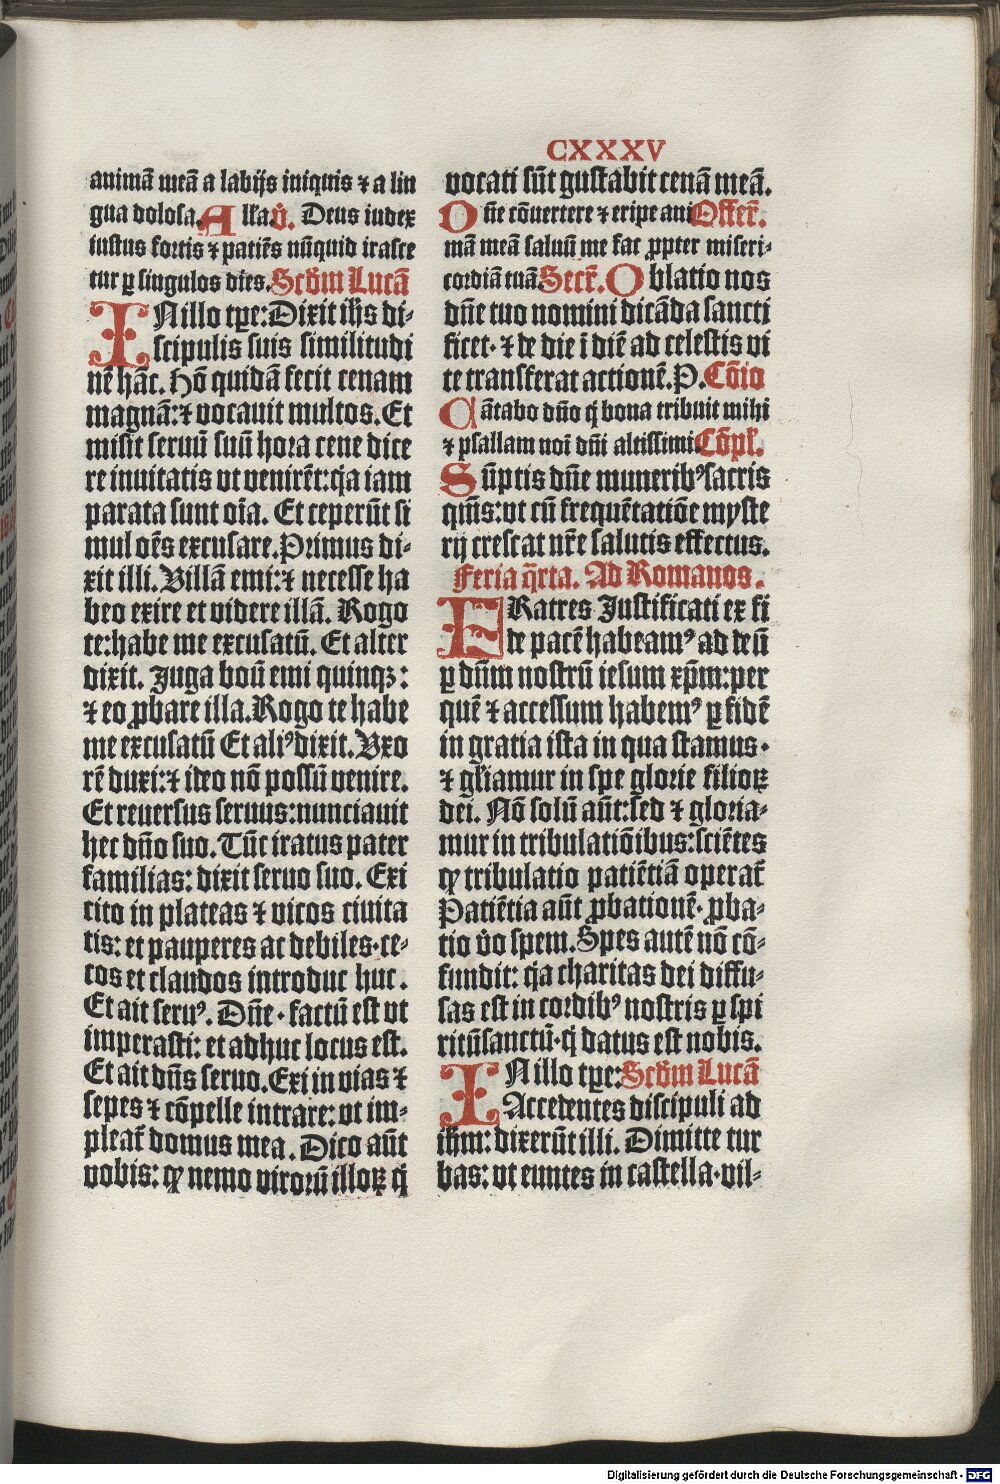 CXXXV
animā meā a labijs iniquis ⁊ a lin
gua dolosa. Alla v̄. Deus iudex
iustus fortis ⁊ patiēs nūquid irasce
tur ꝑ singulos dies. Scd̄m Lucā
IN illo tꝑe: Dixit ih̄s di-
scipulis suis similitudi
nē hāc. Hō quidā fecit cenam
magnā: ⁊ vocauit multos. Et
misit seruū suū hora cene dice
re inuitatis vt venirēt: q̄a iam
parata sunt oīa. Et ceperūt si
mul oēs excusare. Primus di-
xit illi. Villā emi: ⁊ necesse ha
beo exire et videre illā. Rogo
te: habe me excusatū. Et alter
dixit. Juga boū emi quinqꝫ:
⁊ eo ꝓbare illa. Rogo te habe
me excusatū Et ali⁹ dixit. Vxo
rē duxi: ⁊ ideo nō possū venire.
Et reuersus seruus: nunciauit
hec dn̄o suo. Tūc iratus pater
familias: dixit seruo suo. Exi
cito in plateas ⁊ vicos ciuita
tis: et pauperes ac debiles·ce-
cos et claudos introduc huc.
Et ait seru⁹. Dn̄e· factū est vt
imperasti: et adhuc locus est.
Et ait dn̄s seruo. Exi in vias ⁊
sepes ⁊ cōpelle intrare: vt im-
pleat̄ domus mea. Dico aūt
vobis: ꝙ nemo viroꝝū illoꝝ q̄
vocati sūt gustabit cenā meā.
Dn̄e cōuertere ⁊ eripe ani Offer̄.
mā meā saluū me fac ꝓpter miseri-
cordiā tuā Secr̄. Oblatio nos
dn̄e tuo nomini dicāda sancti
ficet· ⁊ de die ī diē ad celestis vi
te transferat actionē. P. Cōio
Cātabo dn̄o q̄ bona tribuit mihi
⁊ psallam noī dn̄i altissimi Cōpl̄.
Sūptis dn̄e munerib⁹ sacris
qm̄s: vt cū frequētatiōe myste
rij crescat nr̄e salutis effectus.
Feria q̄rta. Ad Romanos.
FRatres Justificati ex fi
de pacē habeam⁹ ad deū
ꝑ dn̄m nostrū iesum xp̄m: per
quē ⁊ accessum habem⁹ ꝑ fidē
in gratia ista in qua stamus·
⁊ gl̄iamur in spe glorie filioꝝ
dei. Nō solū aūt: sed ⁊ gloria-
mur in tribulatiōibus: sciētes
ꝙ tribulatio patiētiā operat̄
Patiētia aūt ꝓbationē· ꝓba-
tio v̄o spem. Spes autē nō cō-
fundit: q̄a charitas dei diffu-
sas est in cordib⁹ nostris ꝑ spi
ritūsanctū· q̄ datus est nobis.
IN illo tꝑe: Scd̄m Lucā
Accedentes discipuli ad
ih̄m: dixerūt illi. Dimitte tur
bas: vt euntes in castella·vil-
Digitalisierung gefördert durch die Deutsche Forschungsgemeinschaft - DFG